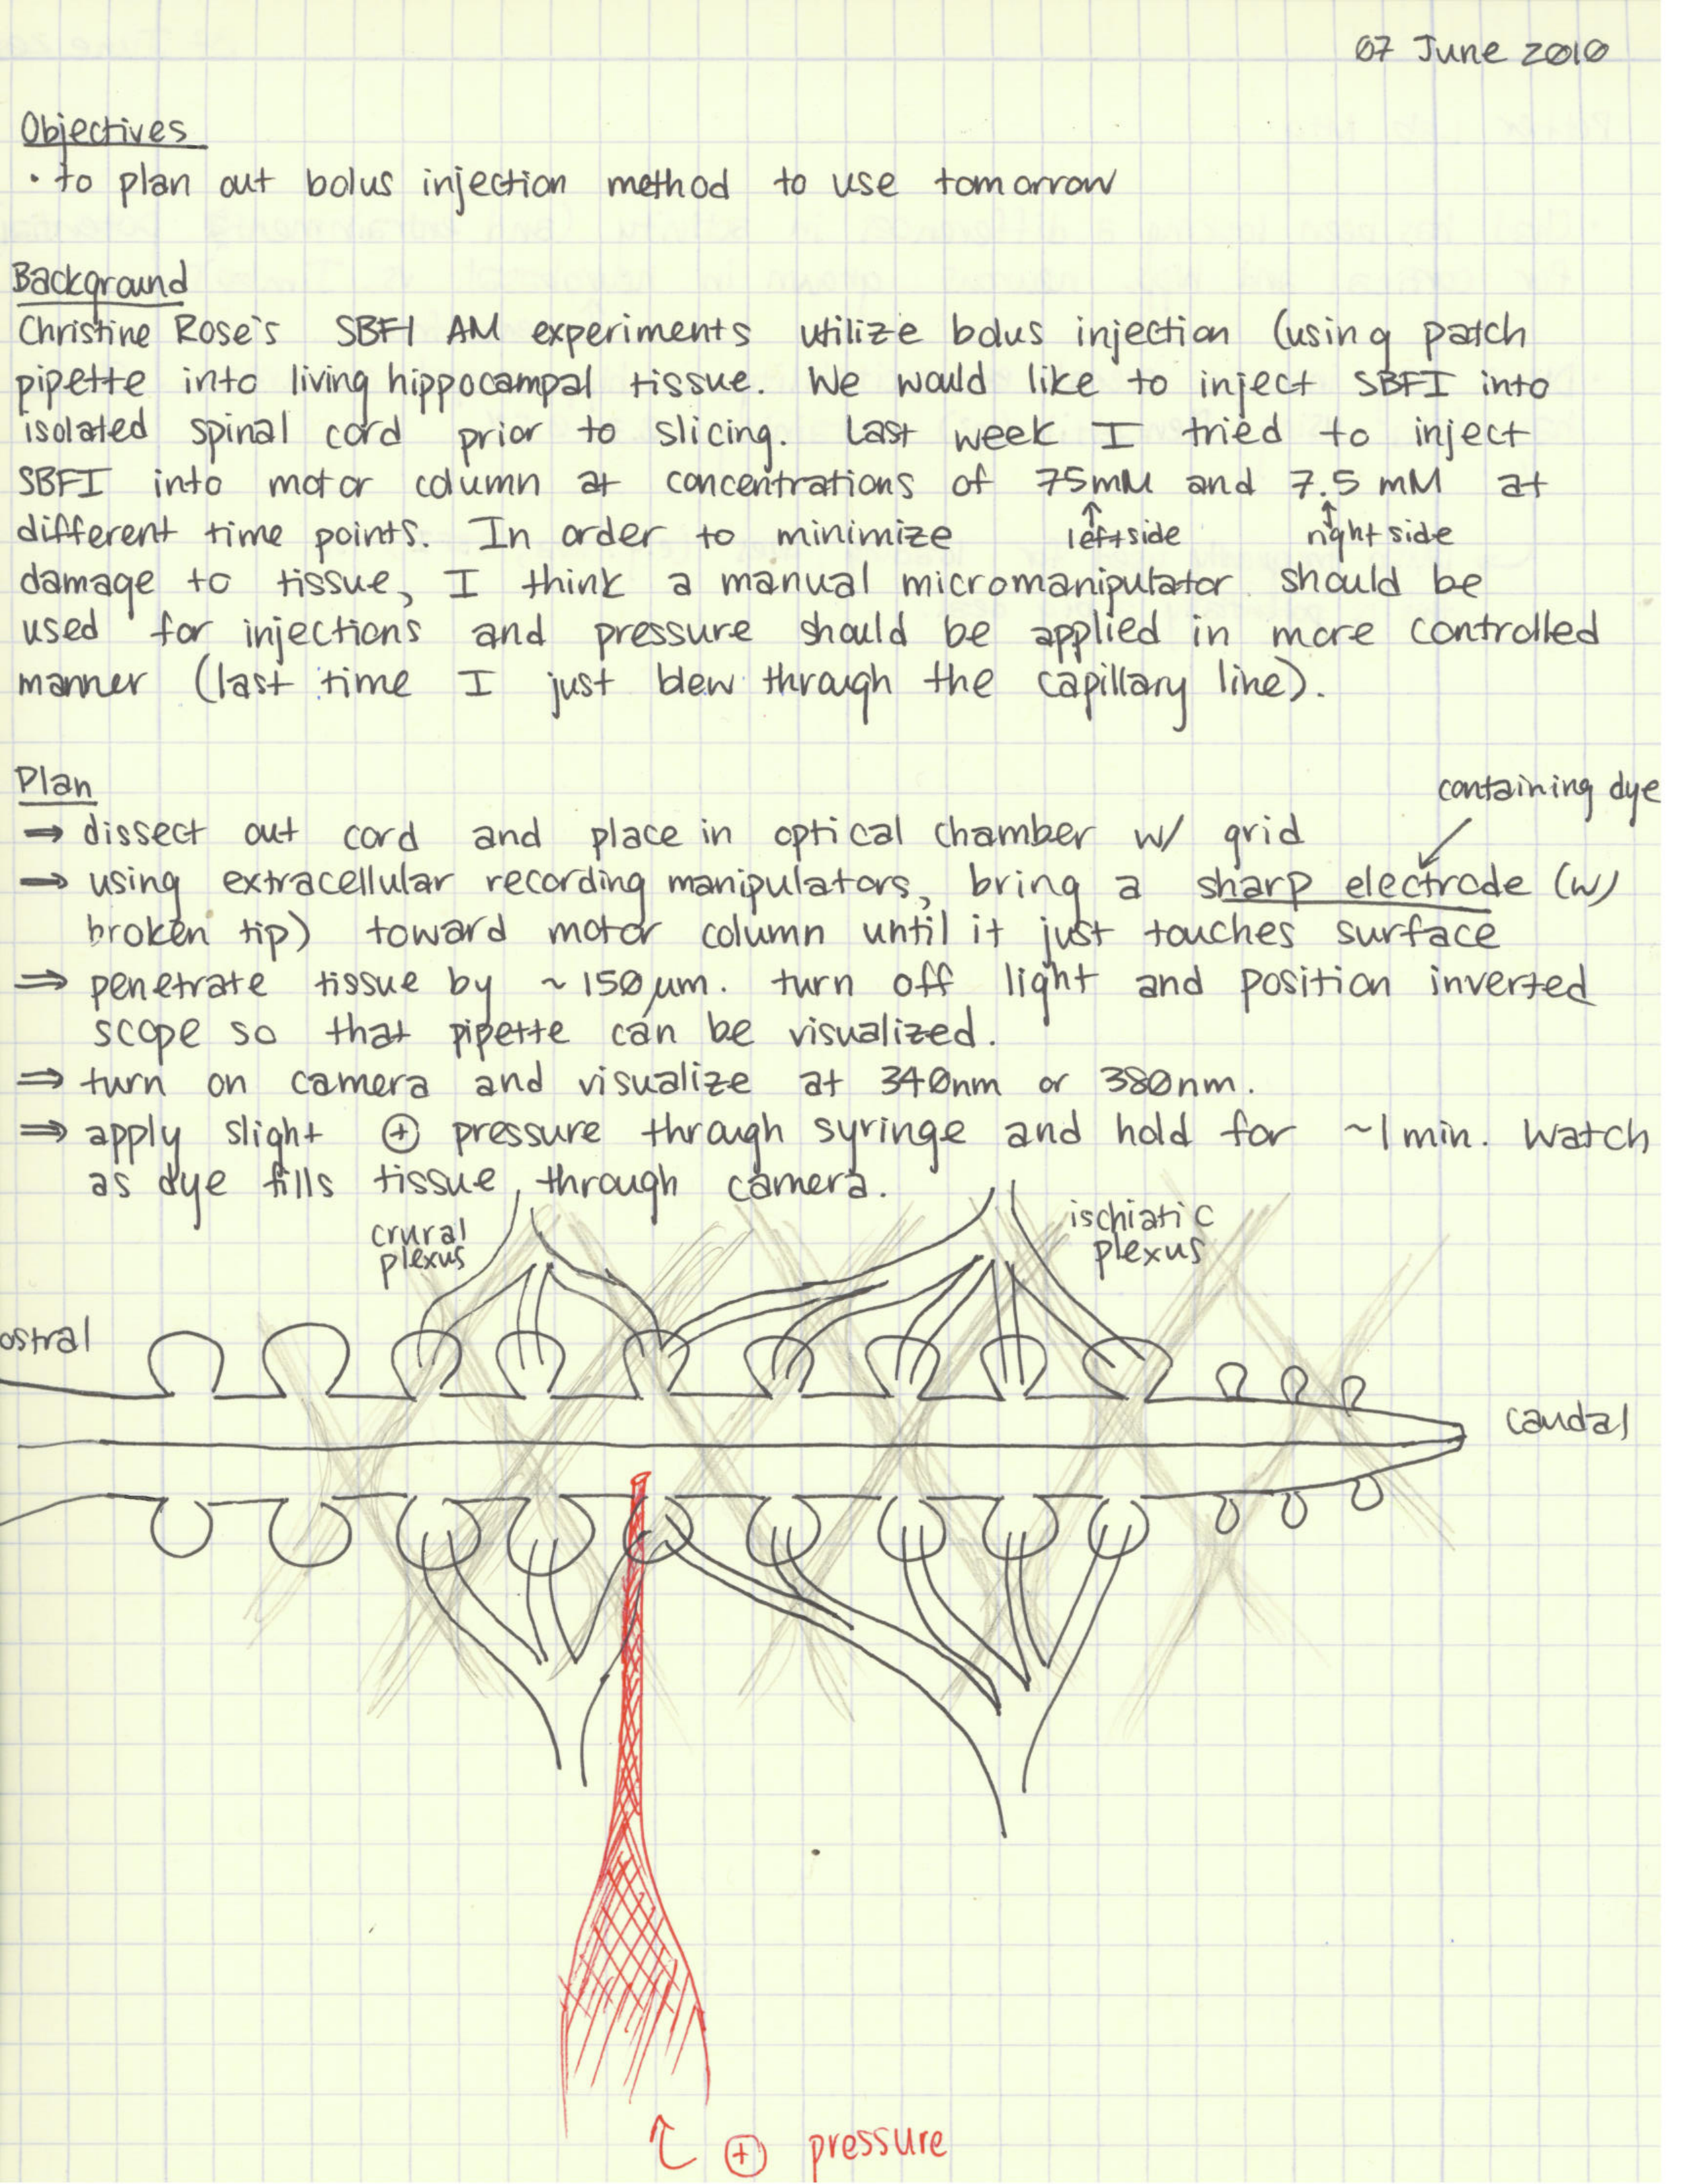 07 June 2010
Objectives
· to plan out bolus injection method to use tomorrow
Background
Christine Rose's SBFI AM experiments utilize bolus injection (using patch
pipette into living hippocampal tissue. We would like to inject SBFI into
isolated spinal cord prior to slicing. Last week I tried to inject
SBFI into motor column at concentrations of 75mM and 7.5 mM at
different time points. In order to minimize
↑ left side
↑ right side
damage to tissue, I think a manual micromanipulator should be
used for injections and pressure should be applied in more controlled
manner (last time I just blew through the capillary line).
Plan
containing dye
⇒ dissect out cord and place in optical chamber w/ grid
⇒ using extracellular recording manipulators, bring a sharp electrode (w/
broken tip) toward motor column until it just touches surface
⇒ penetrate tissue by ~150µm. turn off light and position inverted
scope so that pipette can be visualized.
⇒ turn on camera and visualize at 340nm or 380nm.
⇒ apply slight ⊕ pressure through syringe and hold for ~1min. Watch
as dye fills tissue, through camera.
crural
plexus
ischiatic
plexus
ostral
caudal
⊕ pressure